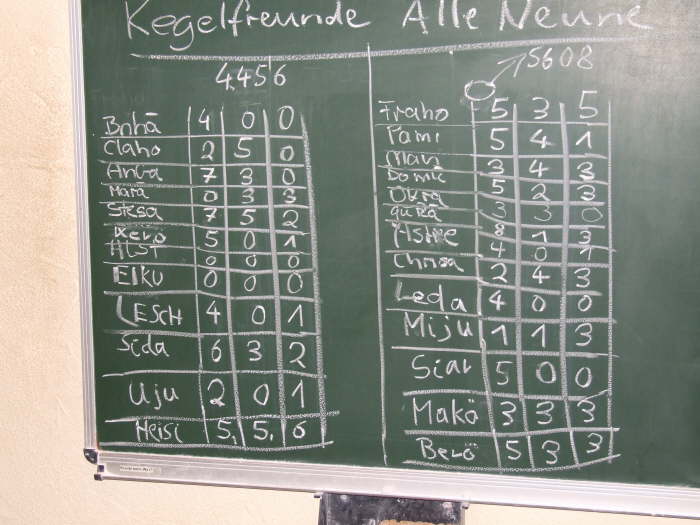 Kegelfreunde Alle Neune
4456
Bnhä 4 0 0
Claho 2 5 0
Anba 7 3 0
Mara 0 3 3
Stesa 7 5 2
Xerö 5 0 1
Hesi 0 0 0
Elku 0 0 0
LESCH 4 0 1
Sida 6 3 2
Uju 2 0 1
Heisi 5, 5, 6
5608
Fraho 5 3 5
Pami 5 4 1
Man 3 4 3
Domic 5 2 3
Okra 3 3 0
Gura
Astre 8 1 3
Chrisa 4 0 1
2 4 3
Leda 4 0 0
Miju 1 1 3
Siar 5 0 0
Makö 3 3 3
Berö 5 3 3